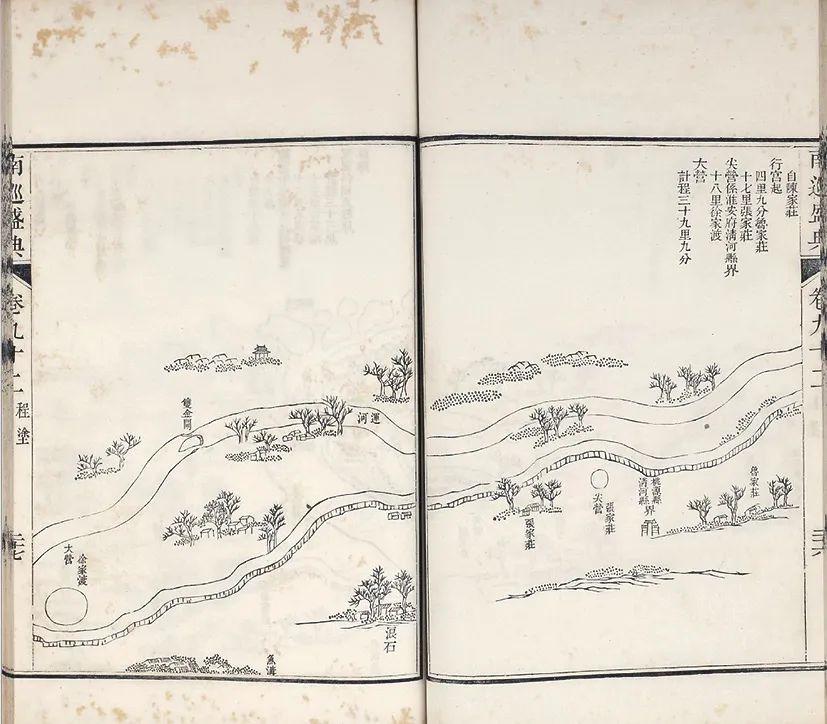 南巡盛典
自陳家莊
行宮起
四里九分魯家莊
十七里張家莊
尖營係淮安府清河縣界
十八里徐家渡
大營
計程三十九里九分
魯家莊
桃源縣
清河縣界
張家莊
尖營
張家莊
運河
雙金閘
浪石
徐家渡
大營
南巡盛典
卷九十二
程塗